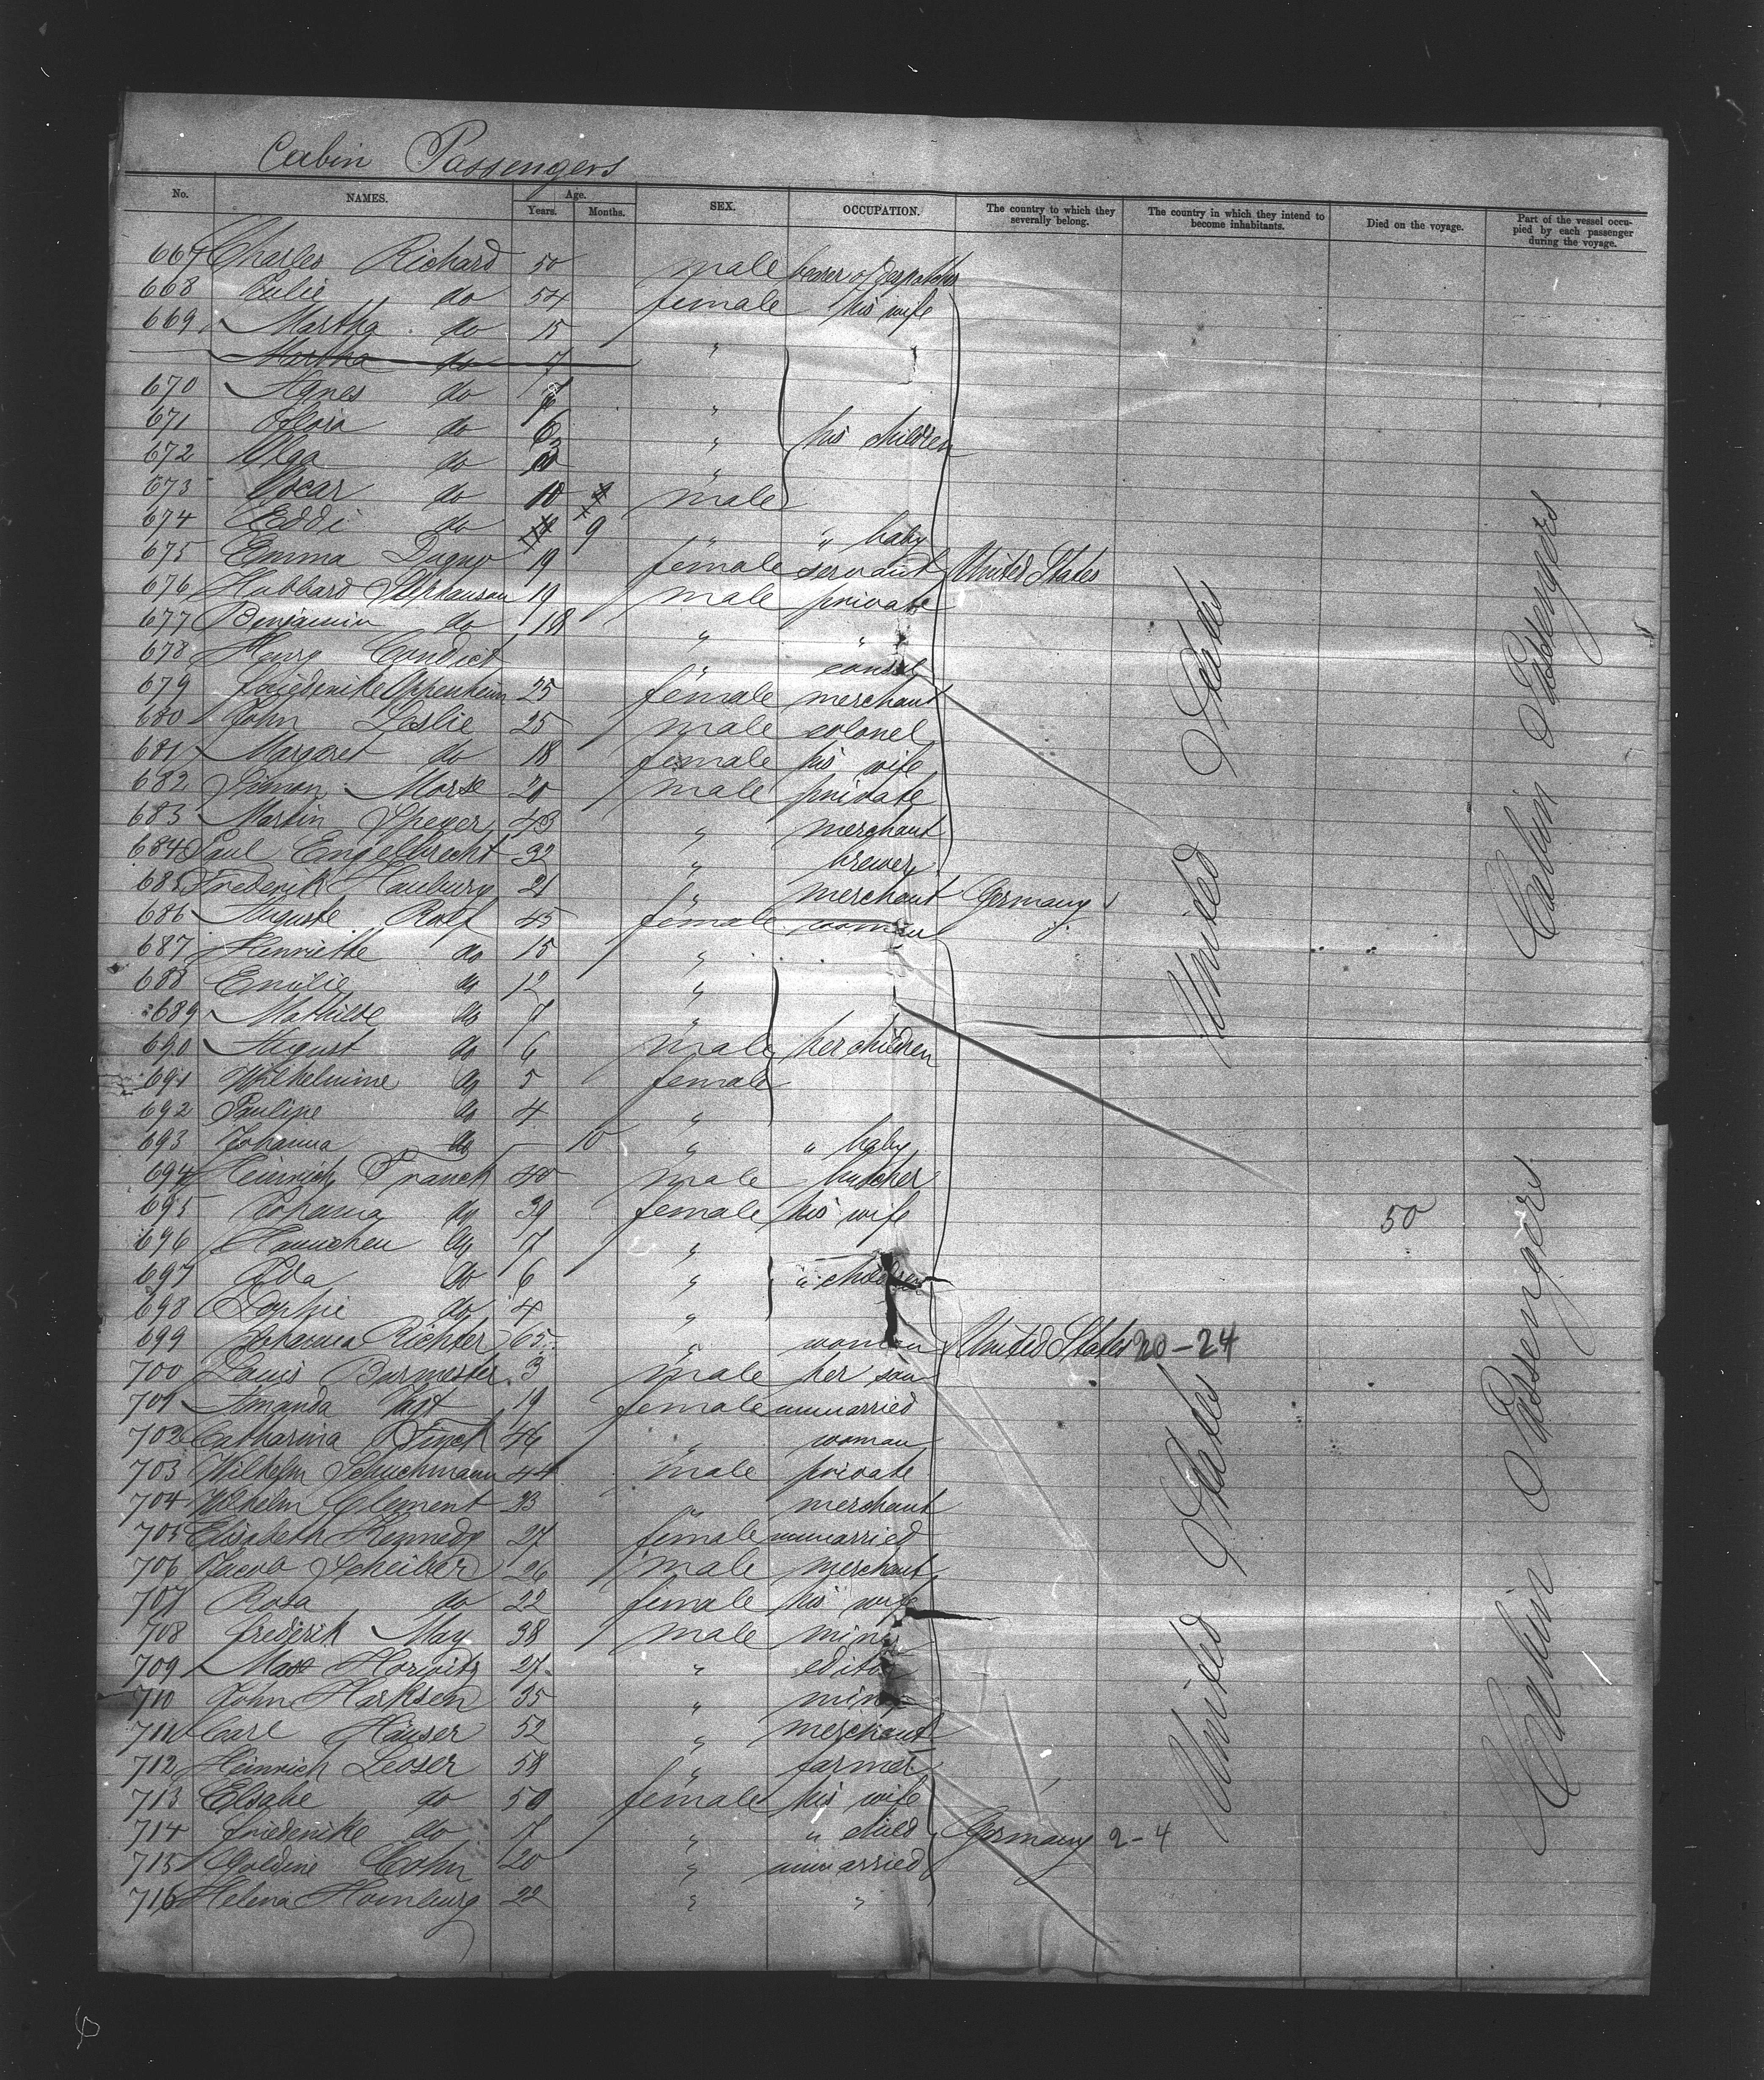 Cabin Passengers
No. NAMES. Age. Years. Months. SEX. OCCUPATION. The country to which they severally belong. The country in which they intend to become inhabitants. Died on the voyage. Part of the vessel occupied by each passenger during the voyage.
667 Charles Richard 50 male bearer of despatches
668 Julie do 54 female his wife
669 Martha do 15 "
Martha do 7
670 Agnes do "
671 Flora do 6 " his children
672 Olga do "
673 Oscar do 10 male
674 Eddi do 9 " " baby
675 Emma 19 female servant United States
676 Hubbard Stephanson 19 male private
677 Benjamin do 18 " "
678 Henry Condict " consul
679 Friederike Oppenheim 25 female merchant
680 John Leslie 25 male colonel
681 Margaret do 18 female his wife
682 Simon Morse 20 male private
683 Martin Speyer 43 " merchant
684 Paul Engelbrecht 32 " brewer
685 Frederik Hamburg 21 " merchant Germany 1
686 Auguste Rolf 45 female woman
687 Henriette do 15 "
688 Emilie do 12 "
689 Mathilde do 7 "
690 August do 6 male her children
691 Wilhelmine do 5 female
692 Pauline do 4 "
693 Johanna do - 10 " " baby
694 Heinrich Franck 40 male butcher
695 Johanna do 39 female his wife 50
696 Hannchen do 7 "
697 Ida do 6 " " children
698 Sophie do 4 "
699 Johanna Richter 65 " woman United States 20-24
700 Louis Burmester 3 male her son
701 Amanda Vogt 19 female unmarried
702 Catharina Finck 46 " woman
703 Wilhelm Schuchmann 44 male private
704 Wilhelm Clement 33 " merchant
705 Elisabeth Kennedy 27 female unmarried
706 Jacob Scheiber 26 male merchant
707 Rosa do 22 female his wife
708 Frederik May 38 male miner
709 Max Horwitz 27 " editor
710 John Harksen 35 " miner
711 Carl Häuser 52 " merchant
712 Heinrich Leoser 58 " farmer
713 Elsabe do 50 female his wife
714 Friederike do 7 " " child Germany 2-4
715 Goldine Cohn 20 " unmarried
716 Helena Homburg 22 " "
United States
United States
Cabin Passengers
Cabin Passengers